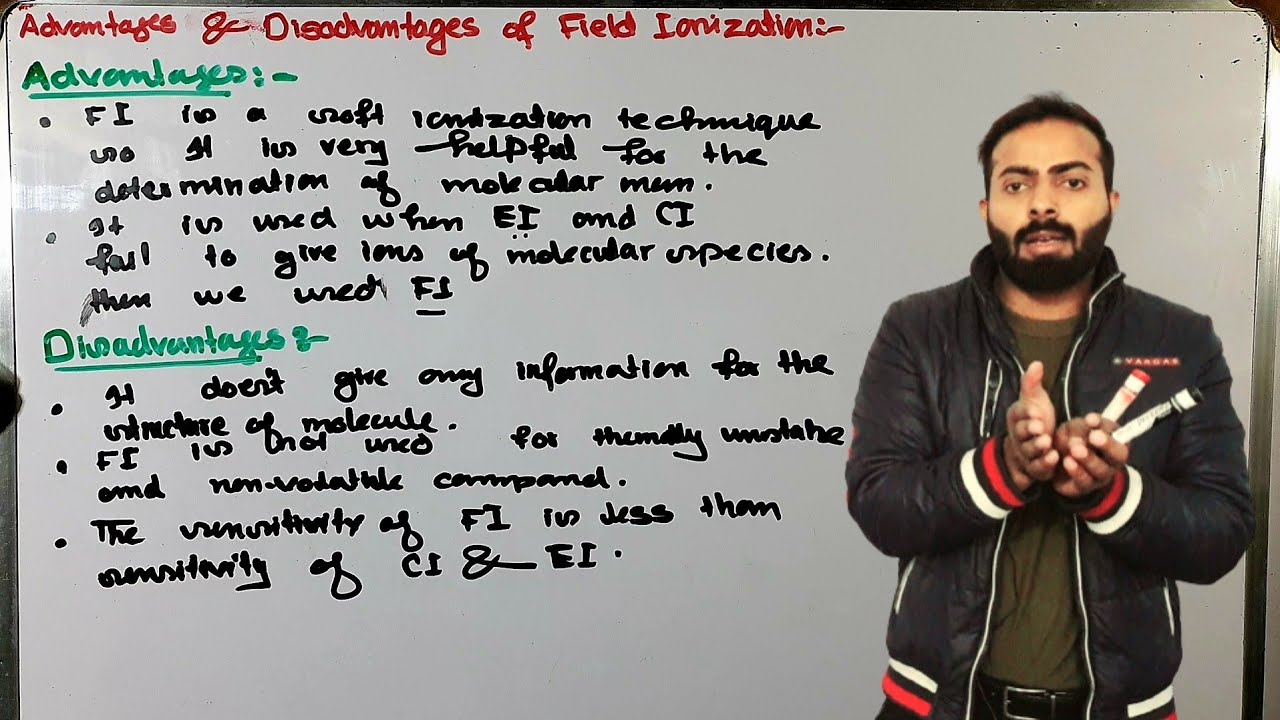 Advantages & Disadvantages of Field Ionization:-
Advantages:-
• FI is a soft ionization technique
so It is very helpful for the
determination of molecular mass.
• It is used when EI and CI
fail to give ions of molecular species.
then we used FI
Disadvantages:-
• It doesn't give any information for the
structure of molecule.
• FI is not used for thermally unstable
and non-volatile compound.
• The sensitivity of FI is less than
sensitivity of CI & EI.
VAAGAS